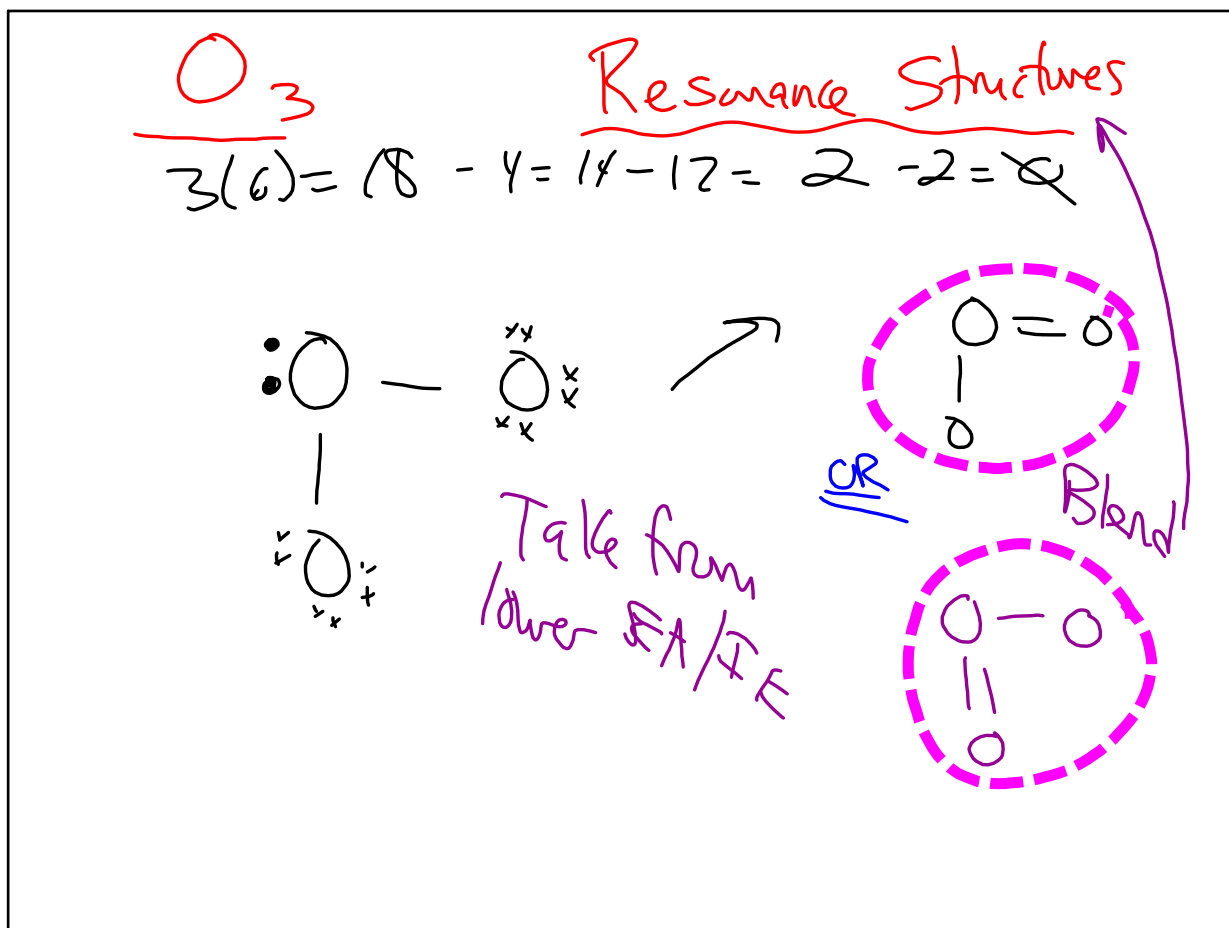 O3
Resonance Structures
3(6) = 18 - 4 = 14 - 12 = 2 - 2 = 0
:O — O
|
O
O = O
|
O
OR
Blend
Take from
lower EA/IE
O — O
||
O